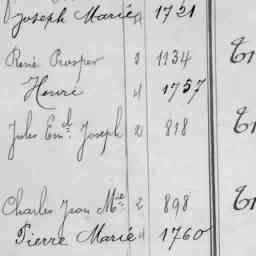 Joseph Marie 4 1721
René Prosper 1 1134
Henri 4 1757
Jules Em.el Joseph 2 818
Charles Jean M.ie 2 898
Pierre Marie 4 1760